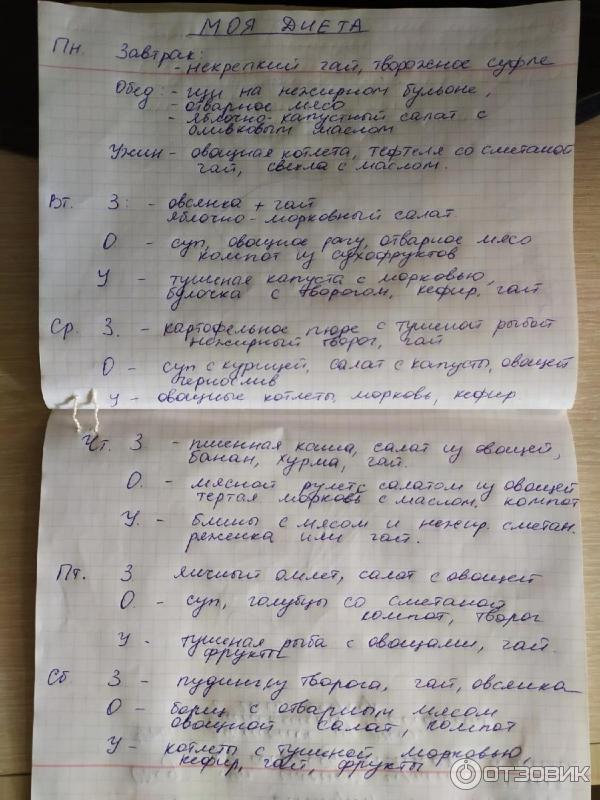 МОЯ ДИЕТА
Пн. Завтрак:
- некрепкий чай, творожное суфле
Обед: - щи на нежирном бульоне,
- отварное мясо
- яблочно-капустный салат с
оливковым маслом
Ужин - овощная котлета, тефтеля со сметаной
чай, свекла с маслом.
Вт. З: - овсянка + чай
яблочно-морковный салат.
О - суп, овощное рагу, отварное мясо
компот из сухофруктов
У - тушеная капуста с морковью,
булочка с творогом, кефир, чай
Ср. З. - картофельное пюре с тушеной рыбой
нежирный творог, чай
О - суп с курицей, салат с капусты, овощей
чернослив
У - овощные котлеты, морковь, кефир
Чт. З - пшенная каша, салат из овощей,
банан, хурма, чай.
О. - мясной рулет с салатом из овощей
тертая морковь с маслом, компот
У. - блины с мясом и нежир. сметан.
ряженка или чай.
Пт. З яичный омлет, салат с овощей
О. - суп, голубцы со сметаной
компот, творог
У - тушеная рыба с овощами, чай.
фрукты
Сб З - пудинг из творога, чай, овсянка
О - борщ с отварным мясом
овощной салат, компот
У - котлеты с тушеной морковью,
кефир, чай, фрукты
ОТЗОВИК